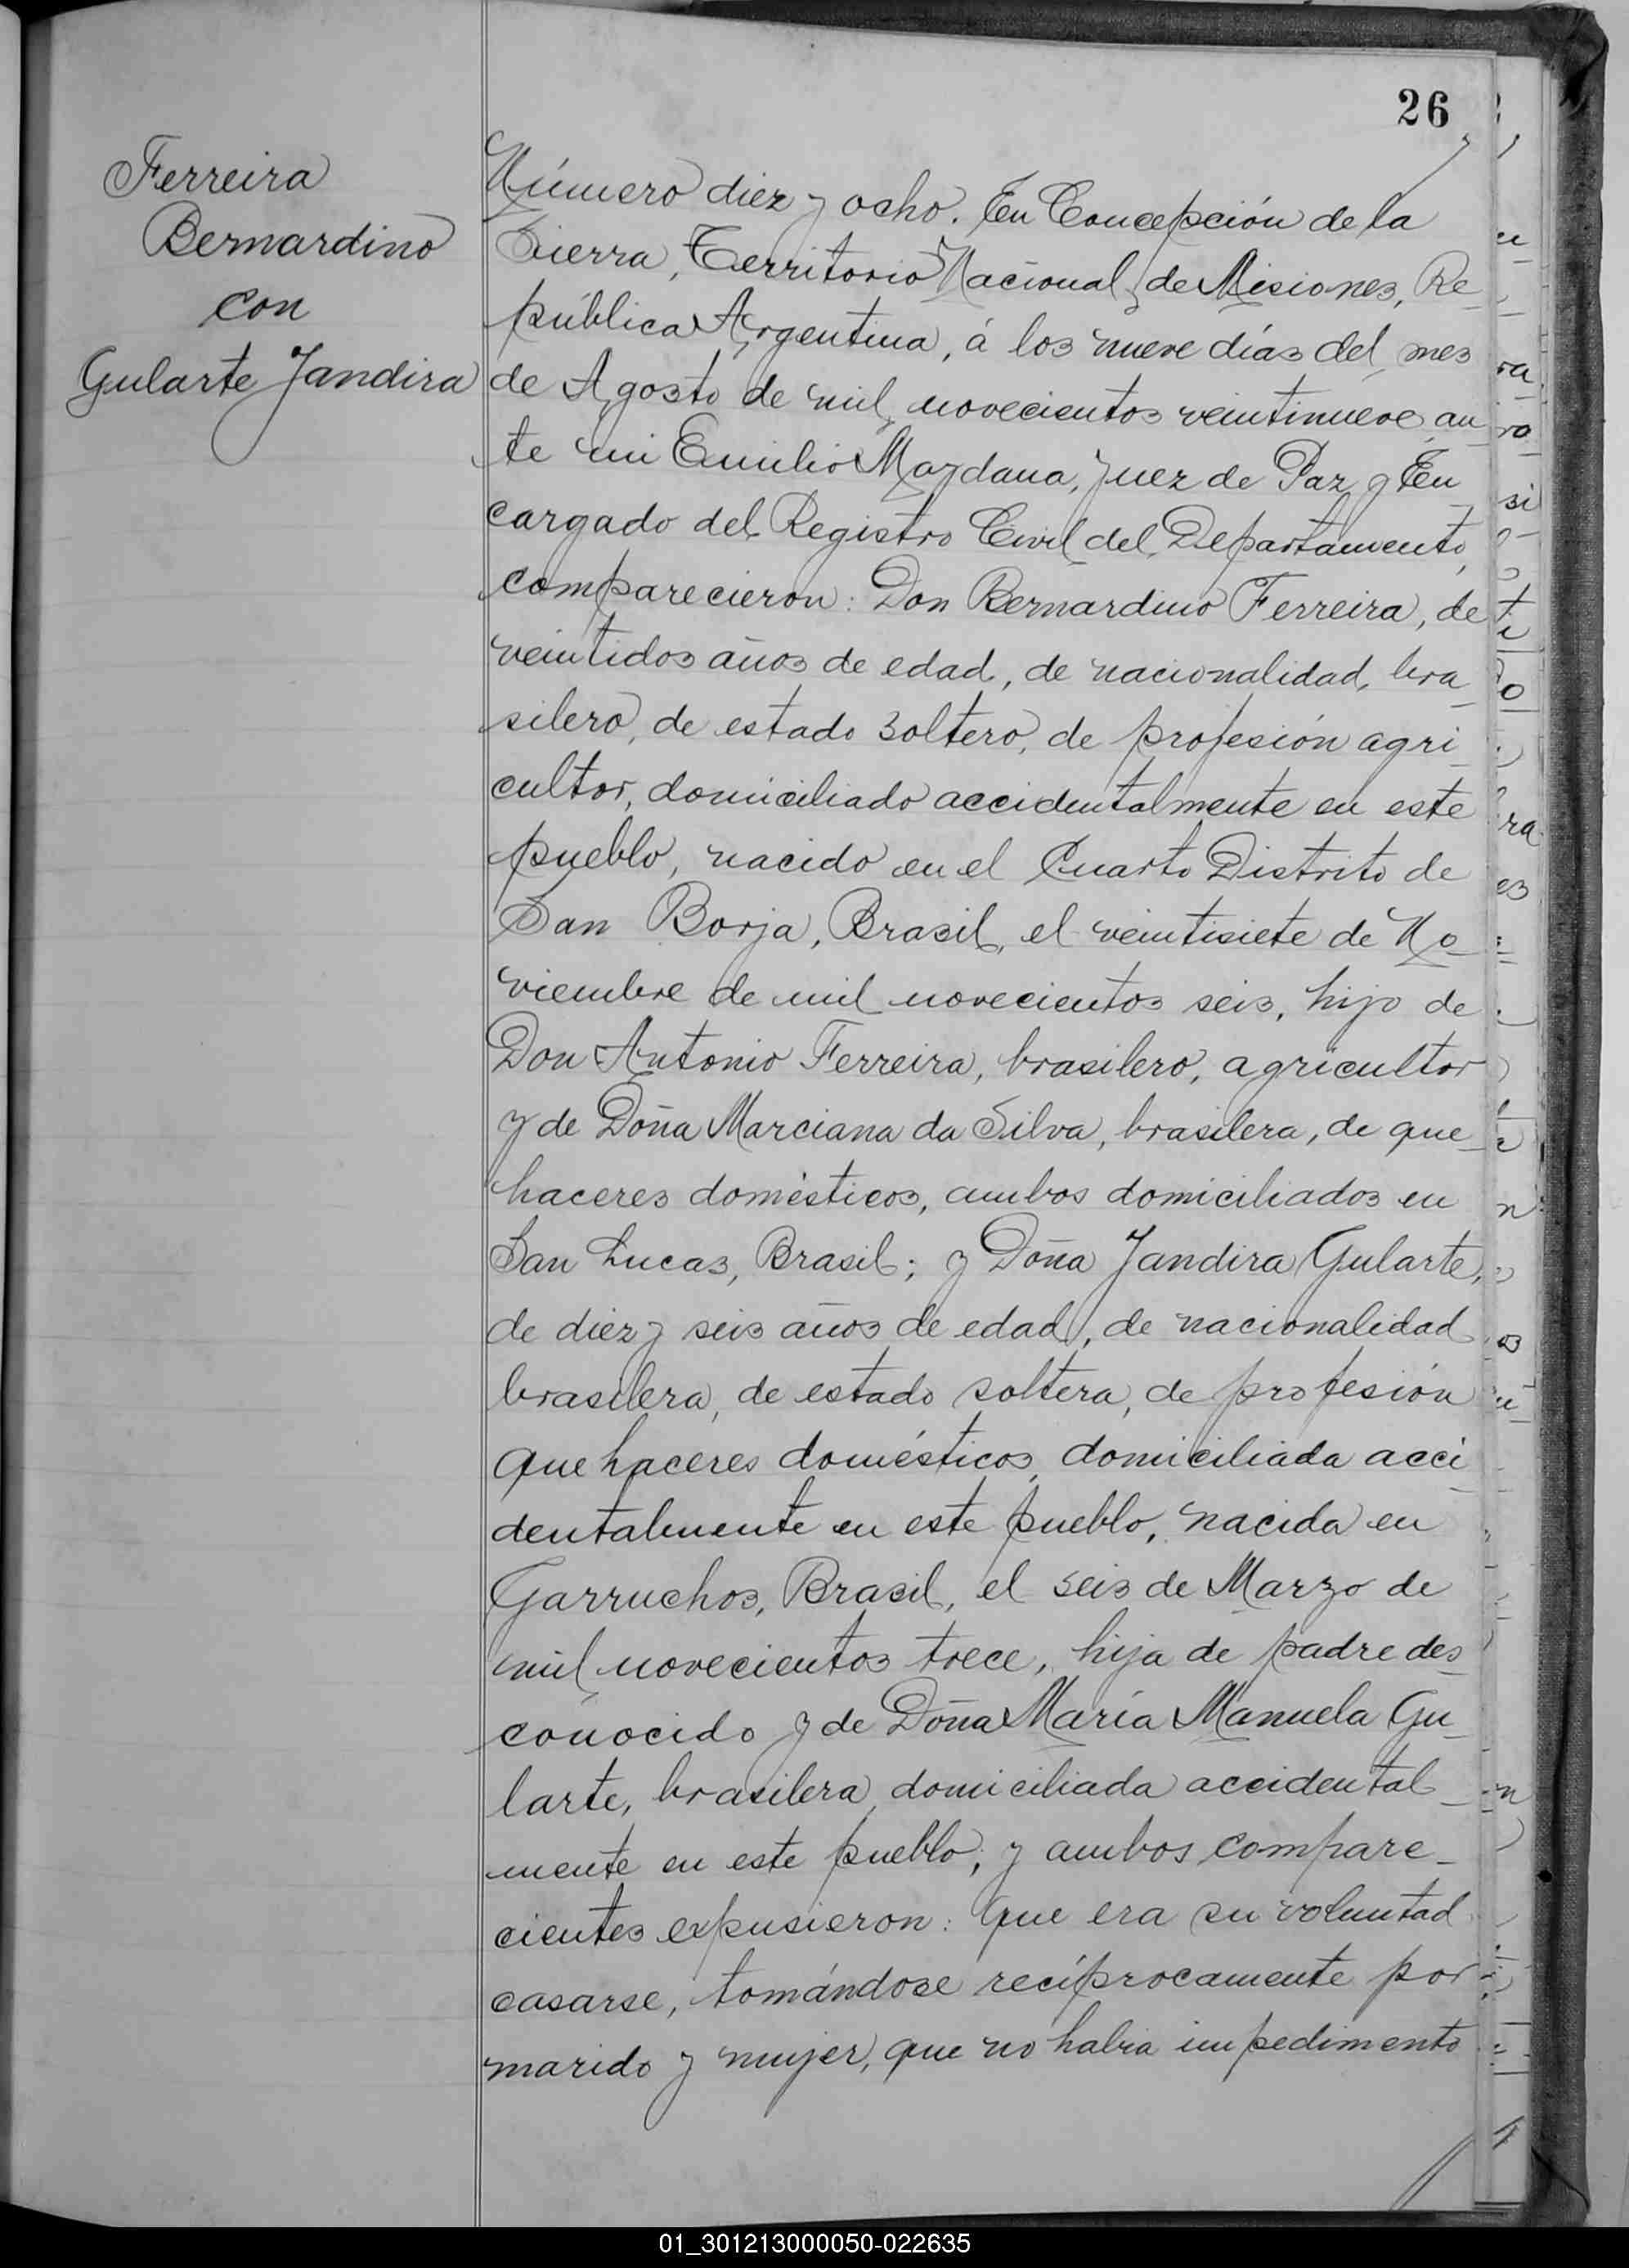 26
Ferreira
Bernardino
con
Gularte Jandira
Número diez y ocho. En Concepción de la
Sierra, Territorio Nacional de Misiones, Re_
pública Argentina, á los nueve días del mes
de Agosto de mil novecientos veintinueve an_
te mi Emilio Maydana, Juez de Paz y En_
cargado del Registro Civil del Departamento,
comparecieron: Don Bernardino Ferreira, de
veintidos años de edad, de nacionalidad bra_
silero, de estado soltero, de profesión agri_
cultor, domiciliado accidentalmente en este
pueblo, nacido en el Cuarto Distrito de
San Borja, Brasil, el veintisiete de No_
viembre de mil novecientos seis, hijo de
Don Antonio Ferreira, brasilero, agricultor
y de Doña Marciana da Silva, brasilera, de que_
haceres domésticos, ambos domiciliados en
San Lucas, Brasil; y Doña Jandira Gularte,
de diez y seis años de edad, de nacionalidad
brasilera, de estado soltera, de profesión
quehaceres domésticos, domiciliada acci_
dentalmente en este pueblo, nacida en
Garruchos, Brasil, el seis de Marzo de
mil novecientos trece, hija de padre des_
conocido y de Doña María Manuela Gu_
larte, brasilera, domiciliada accidental_
mente en este pueblo; y ambos compare_
cientes expusieron: Que era su voluntad
casarse, tomándose recíprocamente por
marido y mujer, que no habia impedimento
01_301213000050-022635